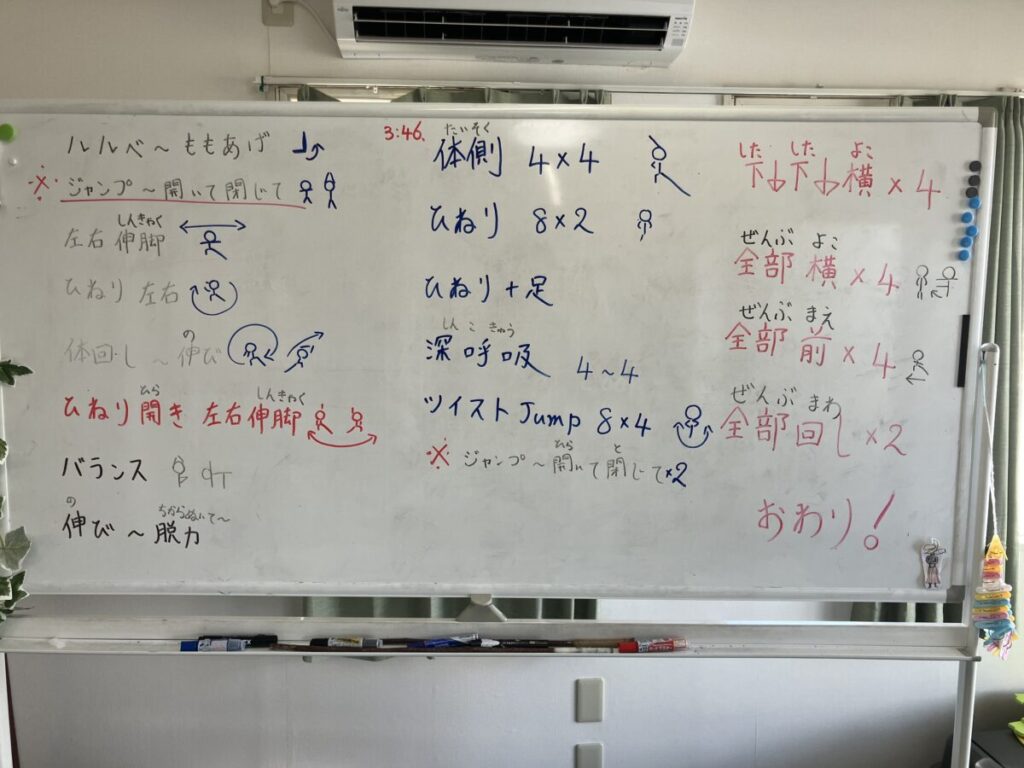 ルルベ～ももあげ
※ ジャンプ～開いて閉じて
しんきゃく
左右 伸脚
ひねり 左右
の
体回し～伸び
ひら しんきゃく
ひねり開き 左右伸脚
バランス
の ちからぬいて～
伸び～脱力
3:46.
たいそく
体側 4×4
ひねり 8×2
ひねり+足
しんこきゅう
深呼吸 4～4
ツイストJump 8×4
ひら と
※ ジャンプ～開いて閉じて×2
した した よこ
下↓下↓横×4
ぜんぶ よこ
全部 横×4
ぜんぶ まえ
全部 前×4
ぜんぶ まわ
全部回し×2
おわり!